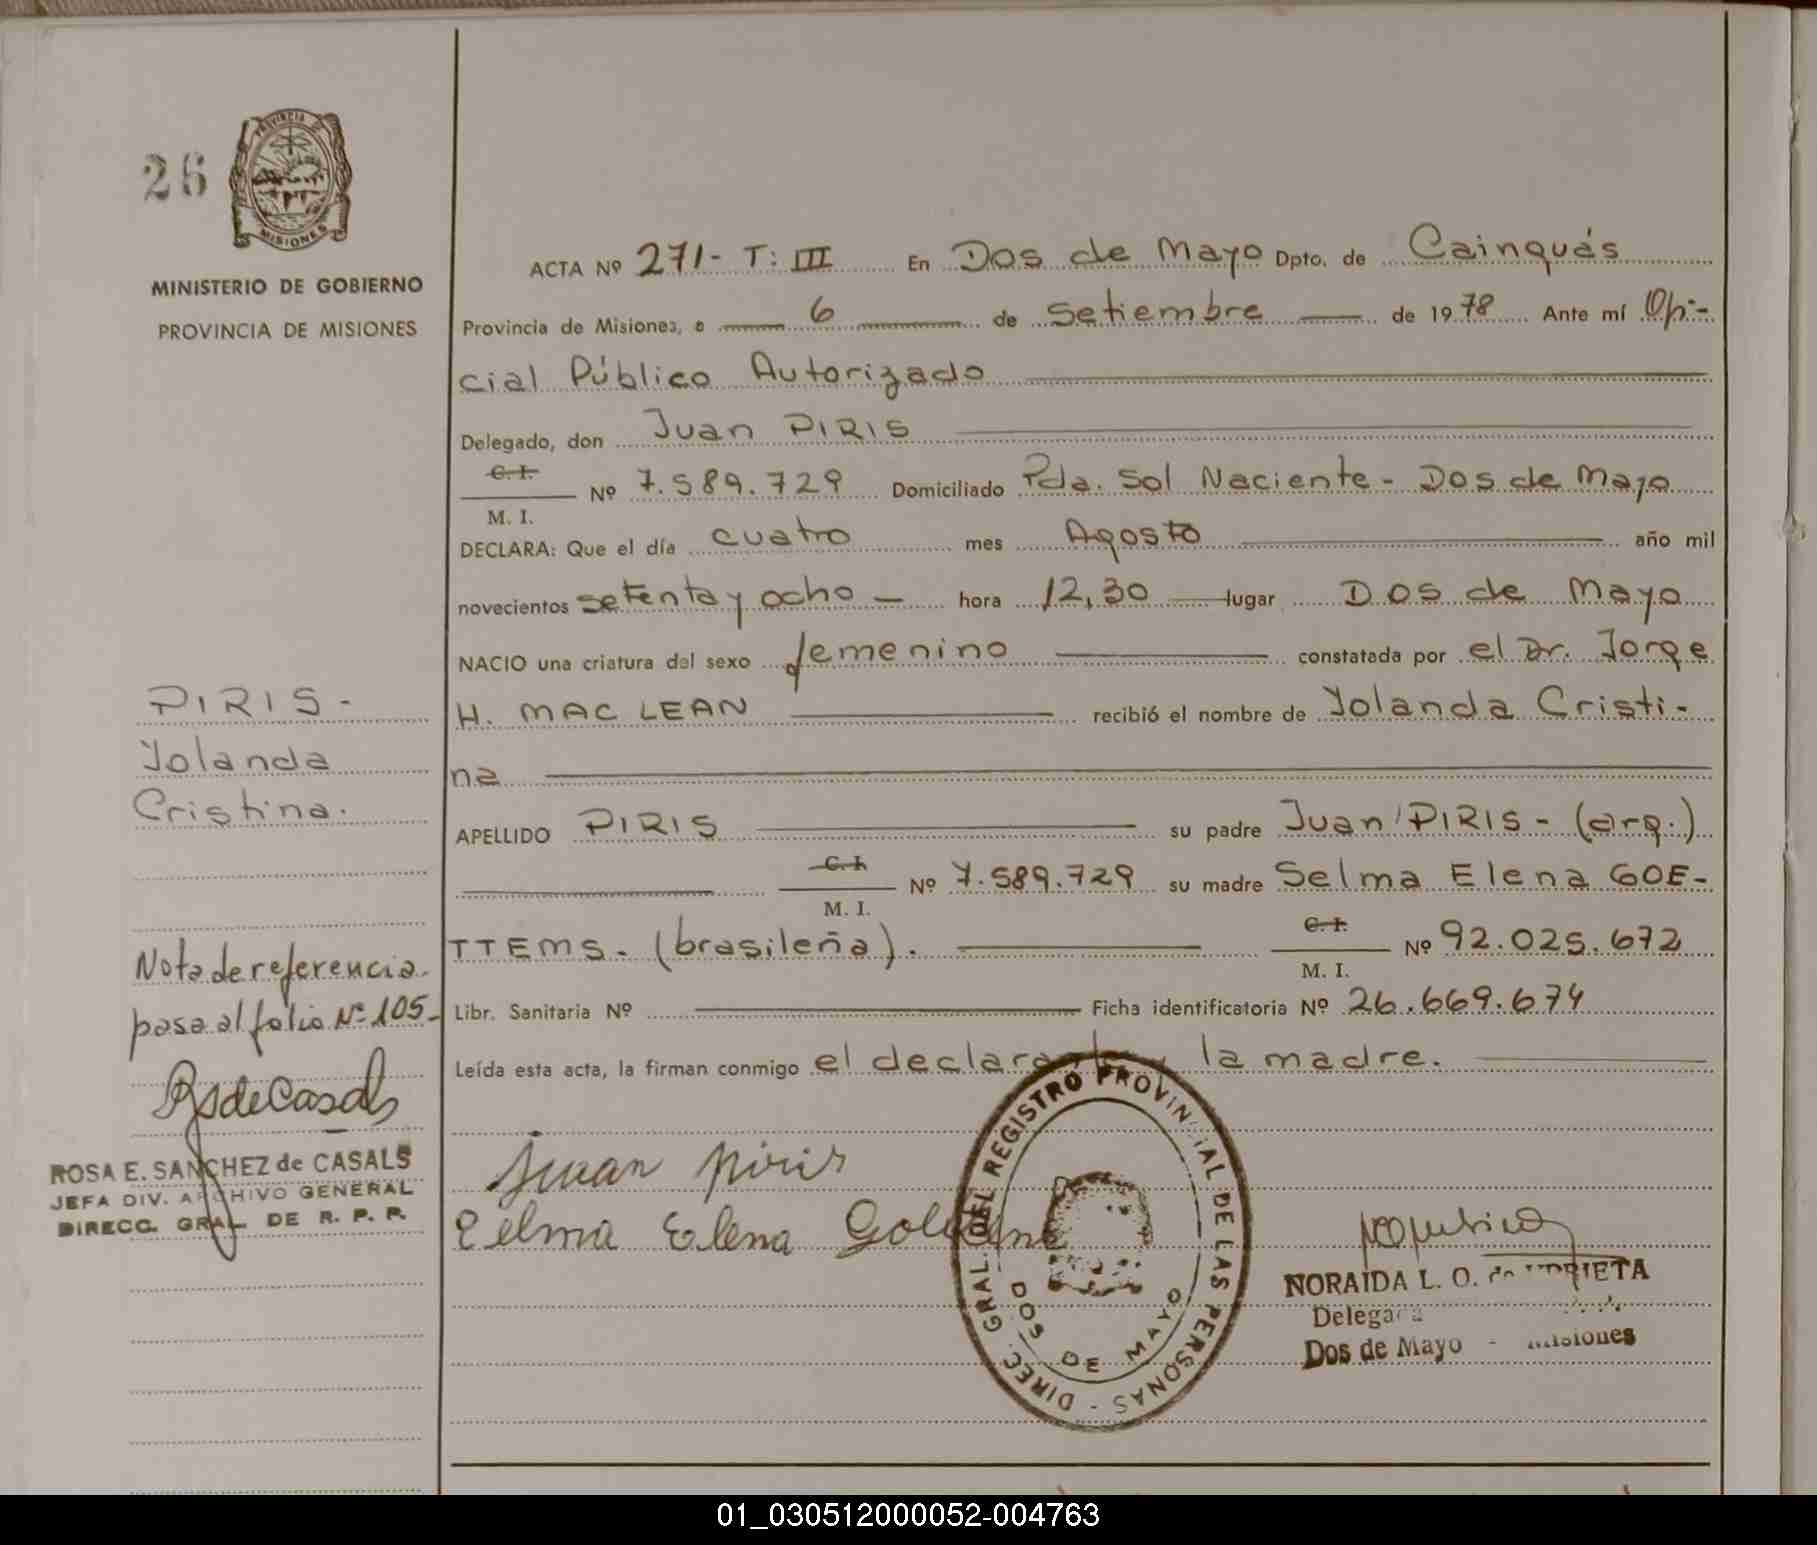 26
PROVINCIA DE
MISIONES
MINISTERIO DE GOBIERNO
PROVINCIA DE MISIONES
ACTA Nº 271- T: III En Dos de Mayo Dpto. de Cainguás
Provincia de Misiones, a 6 de Setiembre de 1978 Ante mí Ofi-
cial Público Autorizado
Delegado, don Juan PIRIS
C. I.
M. I. Nº 7.589.729 Domiciliado Pda. Sol Naciente - Dos de Mayo
DECLARA: Que el día cuatro mes Agosto año mil
novecientos setenta y ocho - hora 12,30 lugar Dos de Mayo
NACIO una criatura del sexo femenino constatada por el Dr. Jorge
H. MAC LEAN recibió el nombre de Yolanda Cristi-
na
APELLIDO PIRIS su padre Juan PIRIS - (arg.)
C. I.
M. I. Nº 7.589.729 su madre Selma Elena GOE-
TTEMS. (brasileña). C. I.
M. I. Nº 92.025.672
Libr. Sanitaria Nº Ficha identificatoria Nº 26.669.674
Leída esta acta, la firman conmigo el declarante y la madre.
Juan Piris
Selma Elena
DIREC. GRAL. DEL REGISTRO PROVINCIAL DE LAS PERSONAS -
DOS DE MAYO
NORAIDA L. O. de URRIETA
Delegada
Dos de Mayo - Misiones
PIRIS -
Yolanda
Cristina.
Nota de referencia
pasa al folio Nº 105-
RSdeCasals
ROSA E. SANCHEZ de CASALS
JEFA DIV. ARCHIVO GENERAL
DIRECC. GRAL. DE R. P. P.
01_030512000052-004763